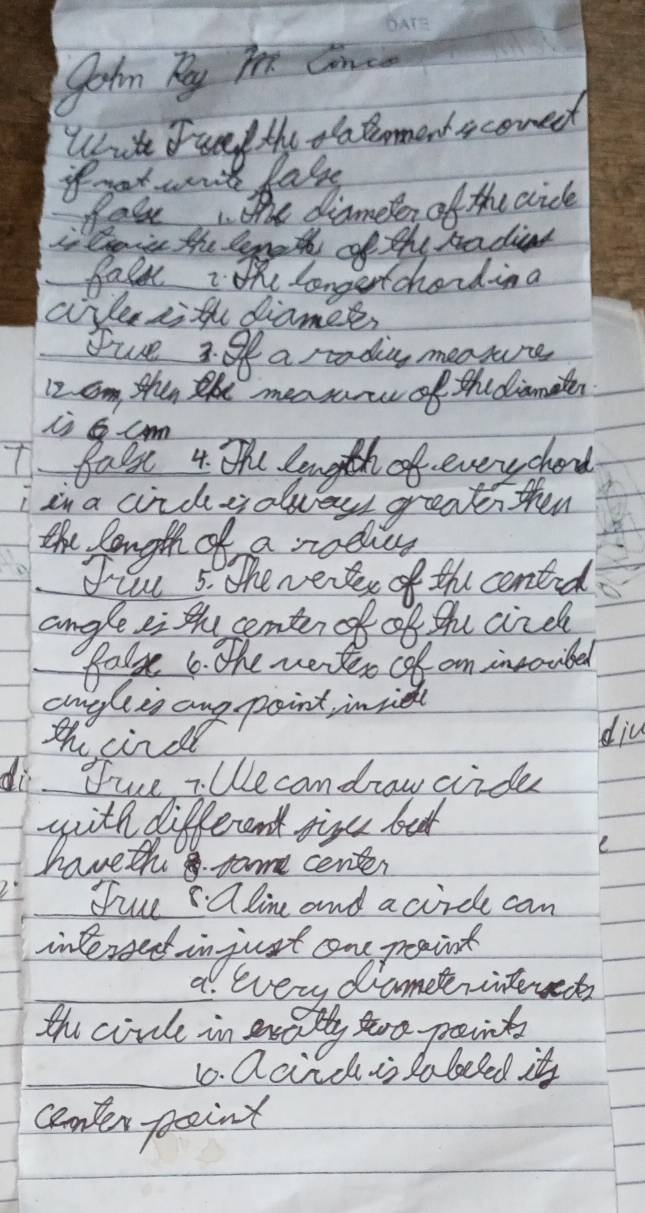 DATE
John Roy M.
Write True if the statemment is correct
if not write false
false 1. The diameter of the circle
is twice the length of the radius
false 2. The longest chord in a
circle is the diameter
True 3. If a radius measures
12 cm, then the measure of the diameter
is 6 cm
false 4. The length of every chord
in a circle is always greater then
the length of a radius
True 5. The vertex of the central
angle is the center of of the circle
false 6. The vertex of an inscribed
angle is any point inside
the circle
True 7. We can draw circles
with different sizes but
have the same center
True 8. A line and a circle can
intersect in just one point
9. Every diameter intersects
the circle in exactly two points
10. A circle is labeled its
center point